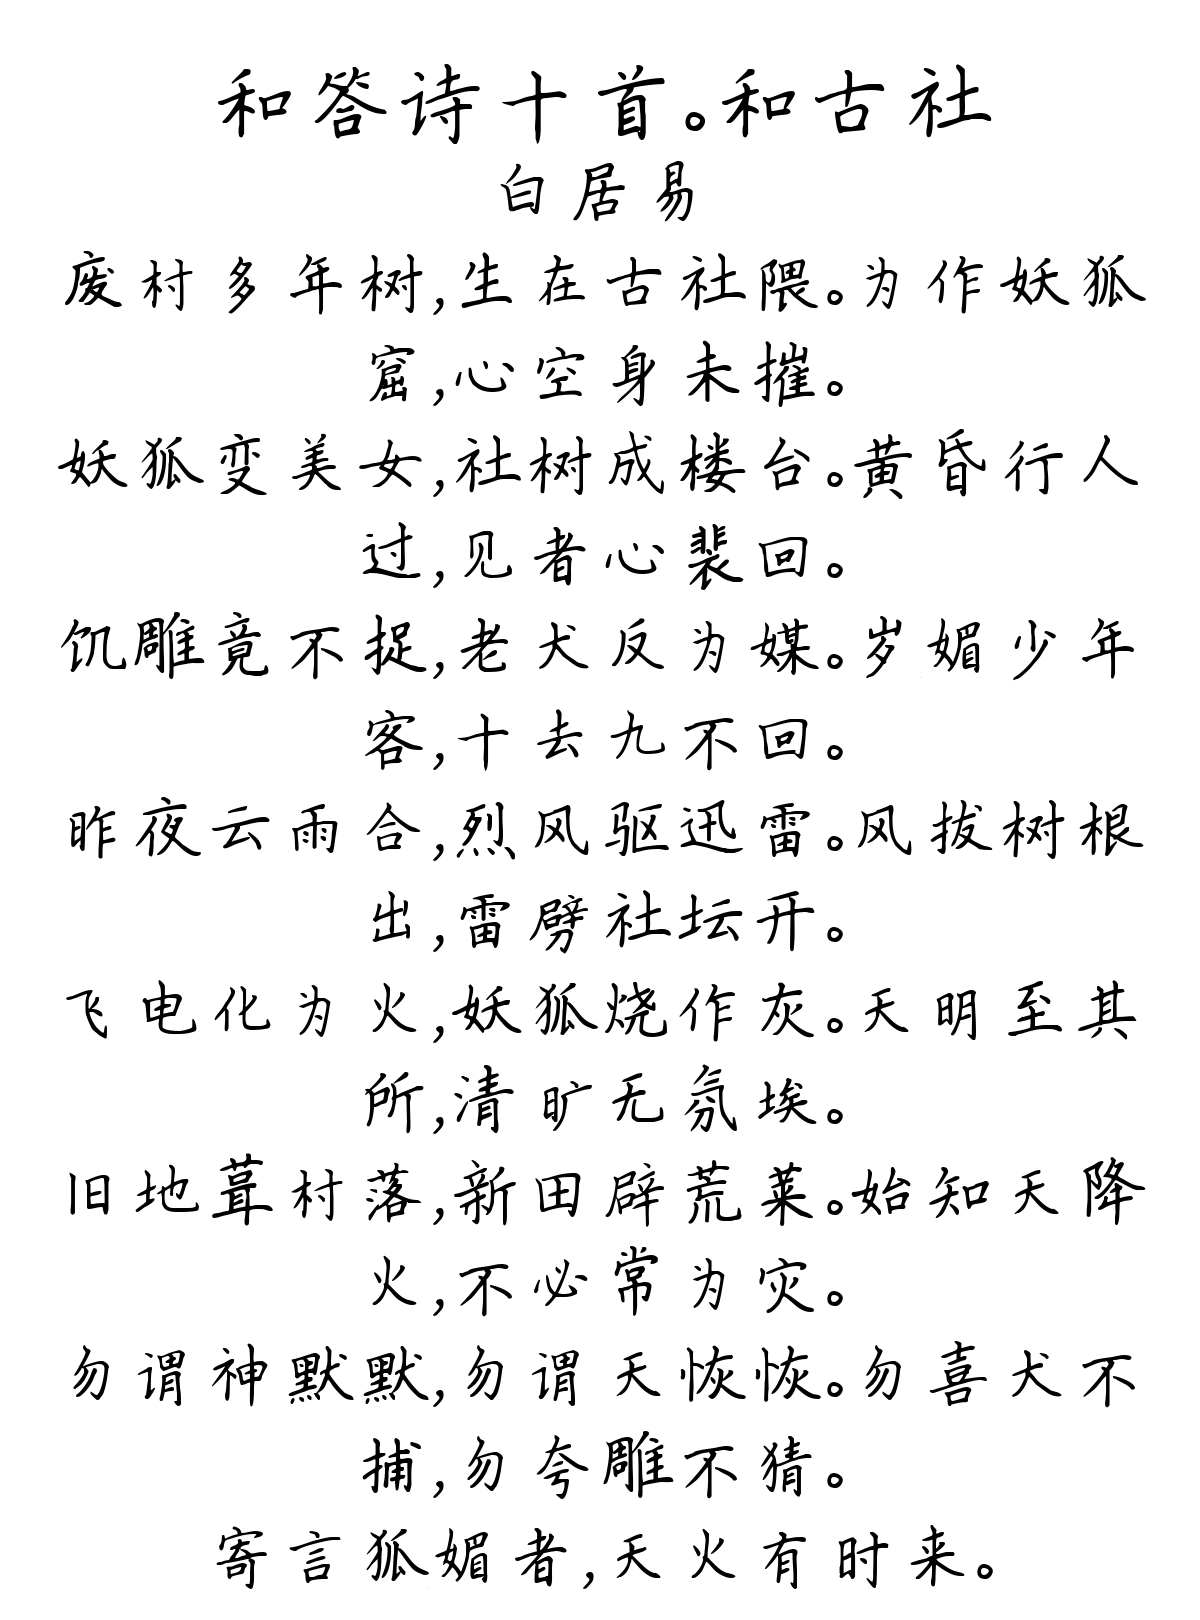 和答诗十首。和古社
白居易
废村多年树,生在古社隈。为作妖狐
窟,心空身未摧。
妖狐变美女,社树成楼台。黄昏行人
过,见者心裴回。
饥雕竟不捉,老犬反为媒。岁媚少年
客,十去九不回。
昨夜云雨合,烈风驱迅雷。风拔树根
出,雷劈社坛开。
飞电化为火,妖狐烧作灰。天明至其
所,清旷无氛埃。
旧地葺村落,新田辟荒莱。始知天降
火,不必常为灾。
勿谓神默默,勿谓天恢恢。勿喜犬不
捕,勿夸雕不猜。
寄言狐媚者,天火有时来。